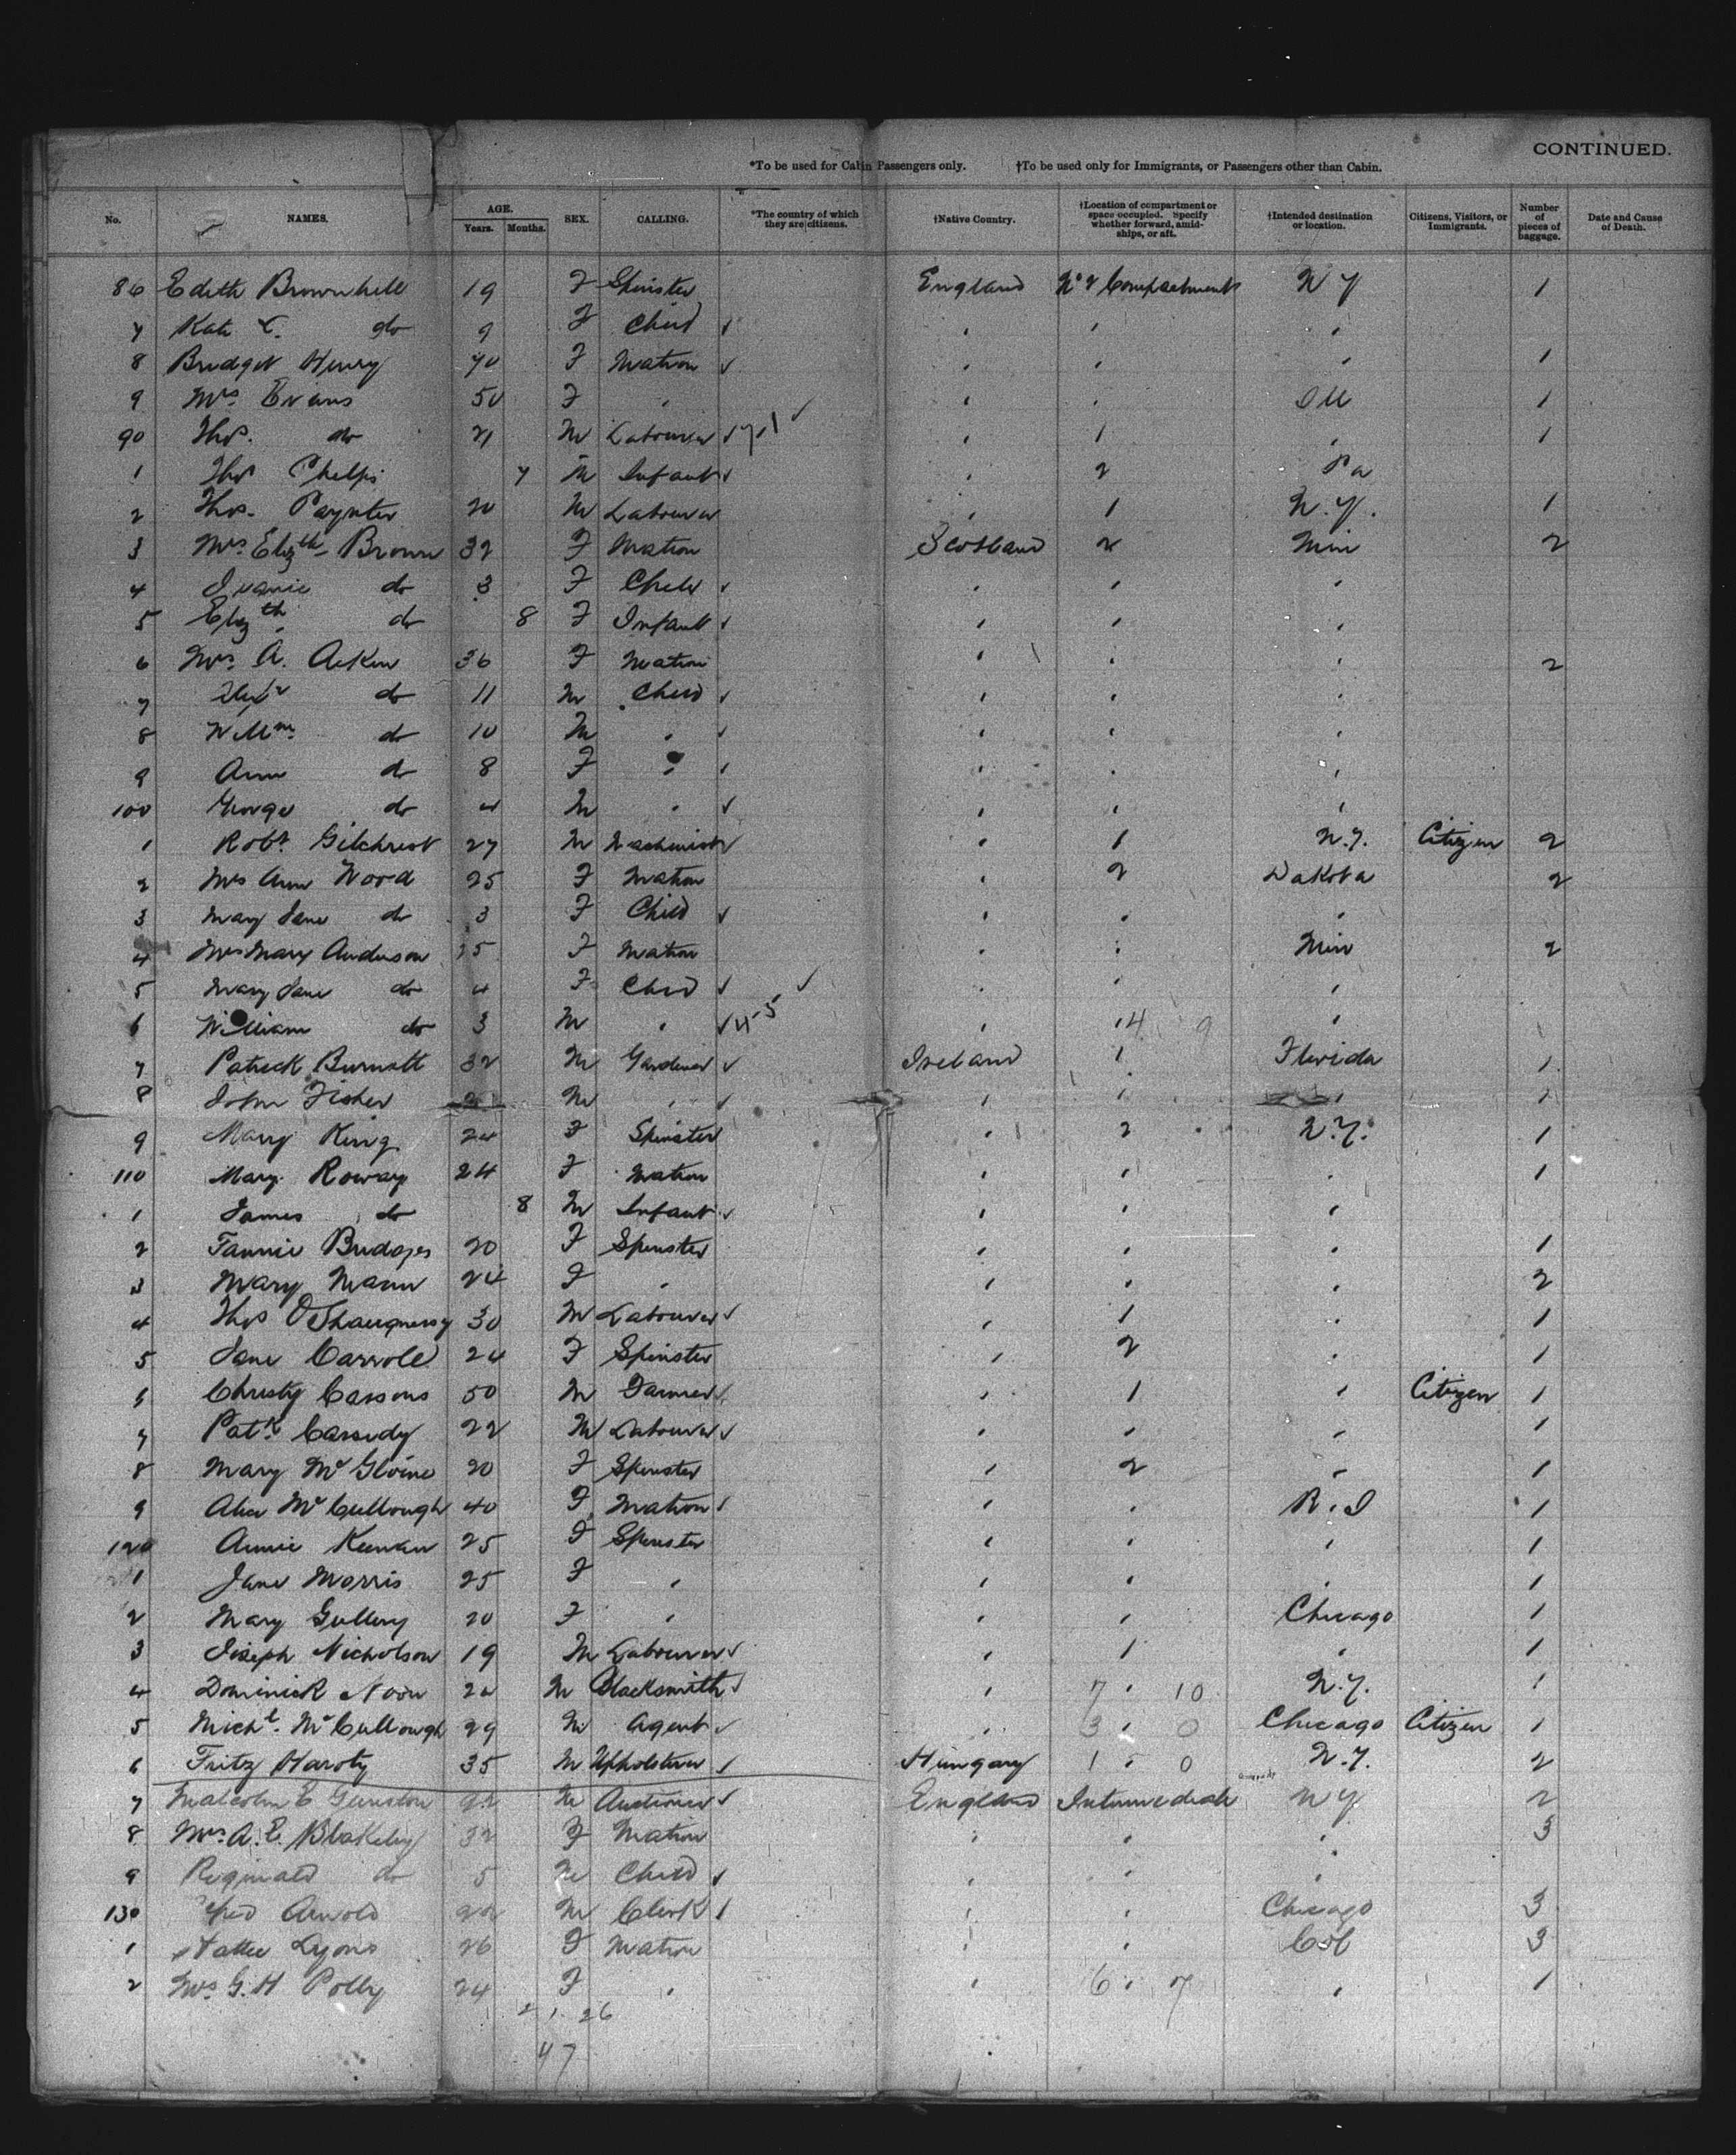 CONTINUED.
*To be used for Cabin Passengers only. †To be used only for Immigrants, or Passengers other than Cabin.
No. NAMES. AGE. Years. Months. SEX. CALLING. *The country of which they are citizens. †Native Country. †Location of compartment or space occupied. Specify whether forward, amidships, or aft. †Intended destination or location. Citizens, Visitors, or Immigrants. Number of pieces of baggage. Date and Cause of Death.
86 Edith Brownhill 19 F Spinster England No 2 Compartment N Y 1
7 Kate C. do 9 F Child ✓ " " "
8 Bridget Henry 40 F Matron ✓ " " " 1
9 Mrs Evans 50 F " " " Ill 1
90 Thos. do 21 M Labourer ✓ 7-1 ✓ " 1 " 1
1 Thos Phelps 7 M Infant ✓ " 2 Pa
2 Thos. Paynter 20 M Labourer " 1 N.Y. 1
3 Mrs Elizth Brown 32 F Matron Scotland 2 Min 2
4 Jeanie do 3 F Child ✓ " " "
5 Elizth do 8 F Infant ✓ " " "
6 Mrs A. Aitken 36 F Matron " " " 2
7 Alexr do 11 M Child ✓ " " "
8 Willm do 10 M " ✓ " " "
9 Ann do 8 F " ✓ " " "
100 George do 4 M " ✓ " " "
1 Robt. Gilchrist 27 M Machinist ✓ " 1 N.Y. Citizen 2
2 Mrs Ann Wood 25 F Matron " 2 Dakota 2
3 Mary Jane do 3 F Child ✓ " " "
4 Mrs Mary Anderson 25 F Matron " " Min 2
5 Mary Jane do 4 F Child ✓ ✓ " " "
6 William do 3 M " ✓ 4-5 " 14 9 "
7 Patrick Burnett 32 M Gardener ✓ Ireland 1 Florida 1
8 John Fisher M " ✓ " " " 1
9 Mary King 24 F Spinster " 2 N.Y. 1
110 Mary Roway 24 F Matron " " " 1
1 James do 8 M Infant ✓ " " "
2 Fannie Bridges 20 F Spinster " " " 1
3 Mary Mann 24 F " " " " 2
4 Thos O'Shaugnessy 30 M Labourer ✓ " 1 " 1
5 Jane Carroll 24 F Spinster " 2 " 1
6 Christy Cassons 50 M Farmer ✓ " 1 " Citizen 1
7 Patk Cassidy 22 M Labourer ✓ " " " 1
8 Mary McGloine 20 F Spinster " 2 " 1
9 Alice McCullough 40 F Matron ✓ " " R.I 1
120 Annie Keenan 25 F Spinster " " " 1
1 Jane Morris 25 F " " " " 1
2 Mary Gullery 20 F " " " Chicago 1
3 Joseph Nicholson 19 M Labourer ✓ " 1 " 1
4 Dominick Noon 20 M Blacksmith ✓ " 7 " 10 N.Y. 1
5 Michl. McCullough 29 M Agent ✓ " 3 " 0 Chicago Citizen 1
6 Fritz Haroty 35 M Upholsterer ✓ Hungary 1 " 0 N.Y. 2
7 Malcolm E Gunston 22 M Auctioneer ✓ England Intermediate N Y 2
8 Mrs. A. E. Blakeley 32 F Matron " " " 3
9 Reginald do 5 M Child ✓ " " "
130 Fred Arnold 22 M Clerk ✓ " " Chicago 3
1 Hattie Lyons 26 F Matron " " Col 3
2 Mrs G. H Polly 24 F " " 6 " 7 " 1
21 26
47